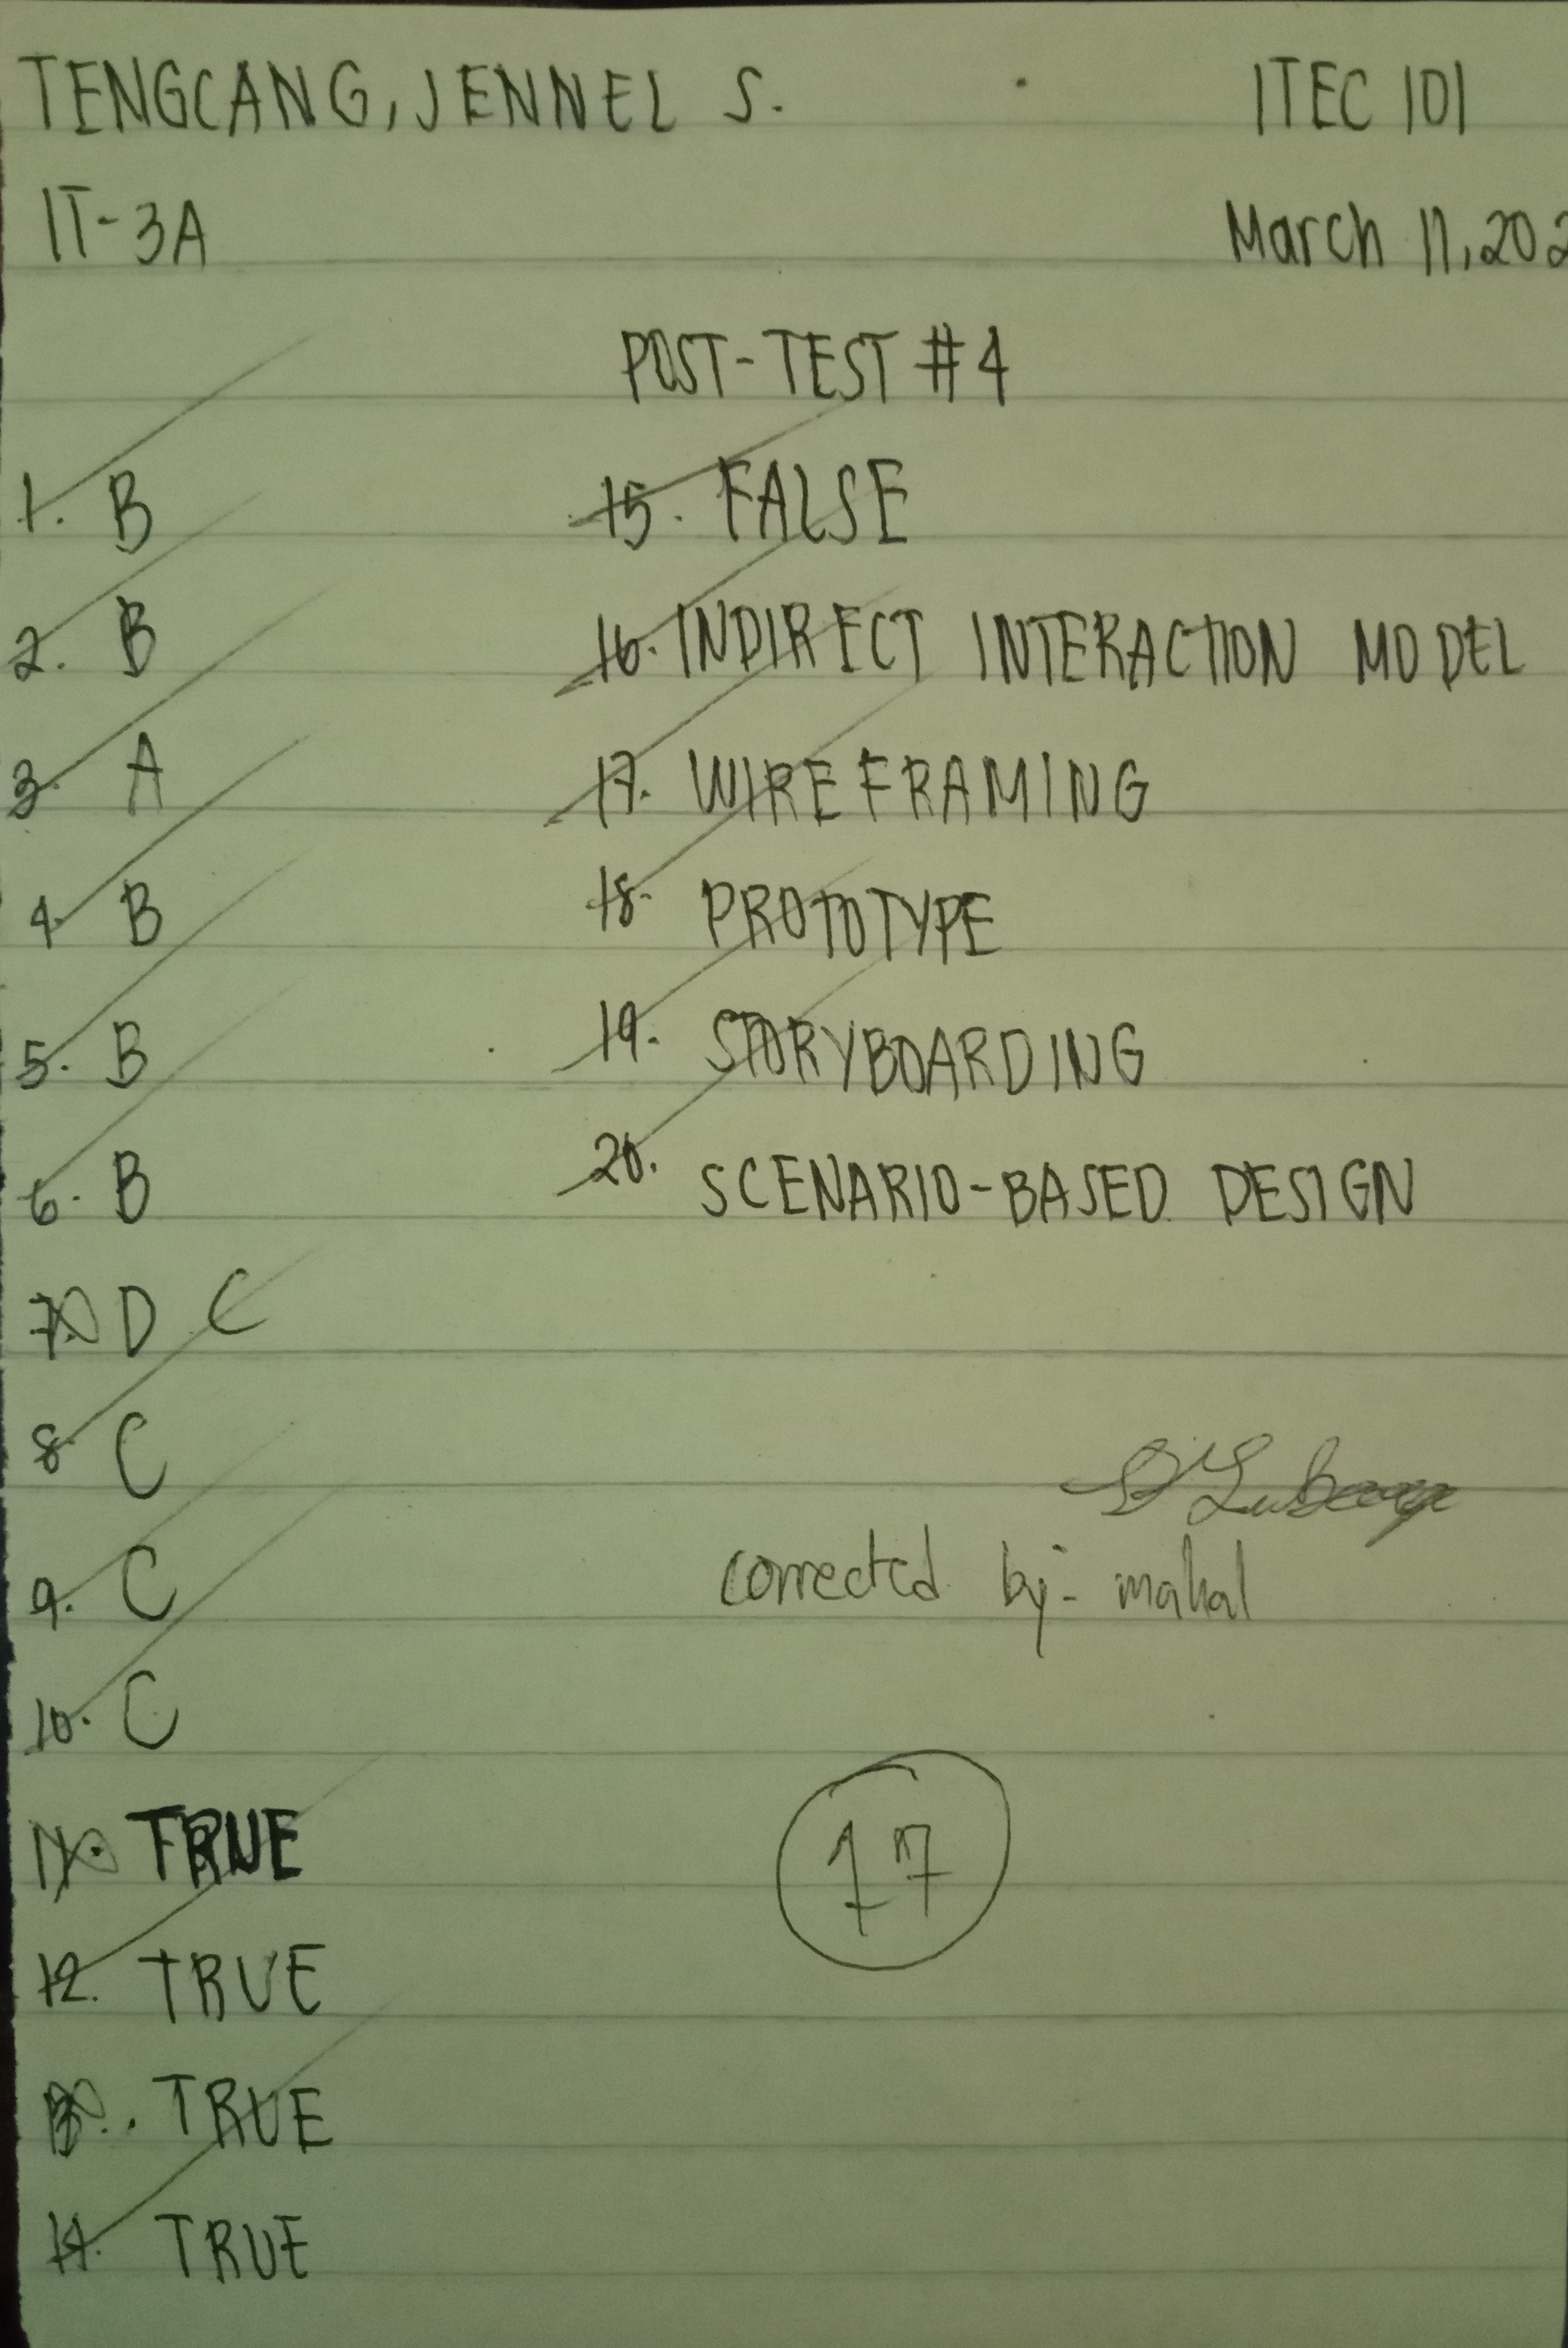 TENGCANG, JENNEL S.
ITEC 101
IT-3A
March 11, 202
POST-TEST #4
1. B
2. B
3. A
4. B
5. B
6. B
7. D C
8. C
9. C
10. C
11. TRUE
12. TRUE
13. TRUE
14. TRUE
15. FALSE
16. INDIRECT INTERACTION MODEL
17. WIREFRAMING
18. PROTOTYPE
19. STORYBOARDING
20. SCENARIO-BASED DESIGN
corrected by: mahal
17